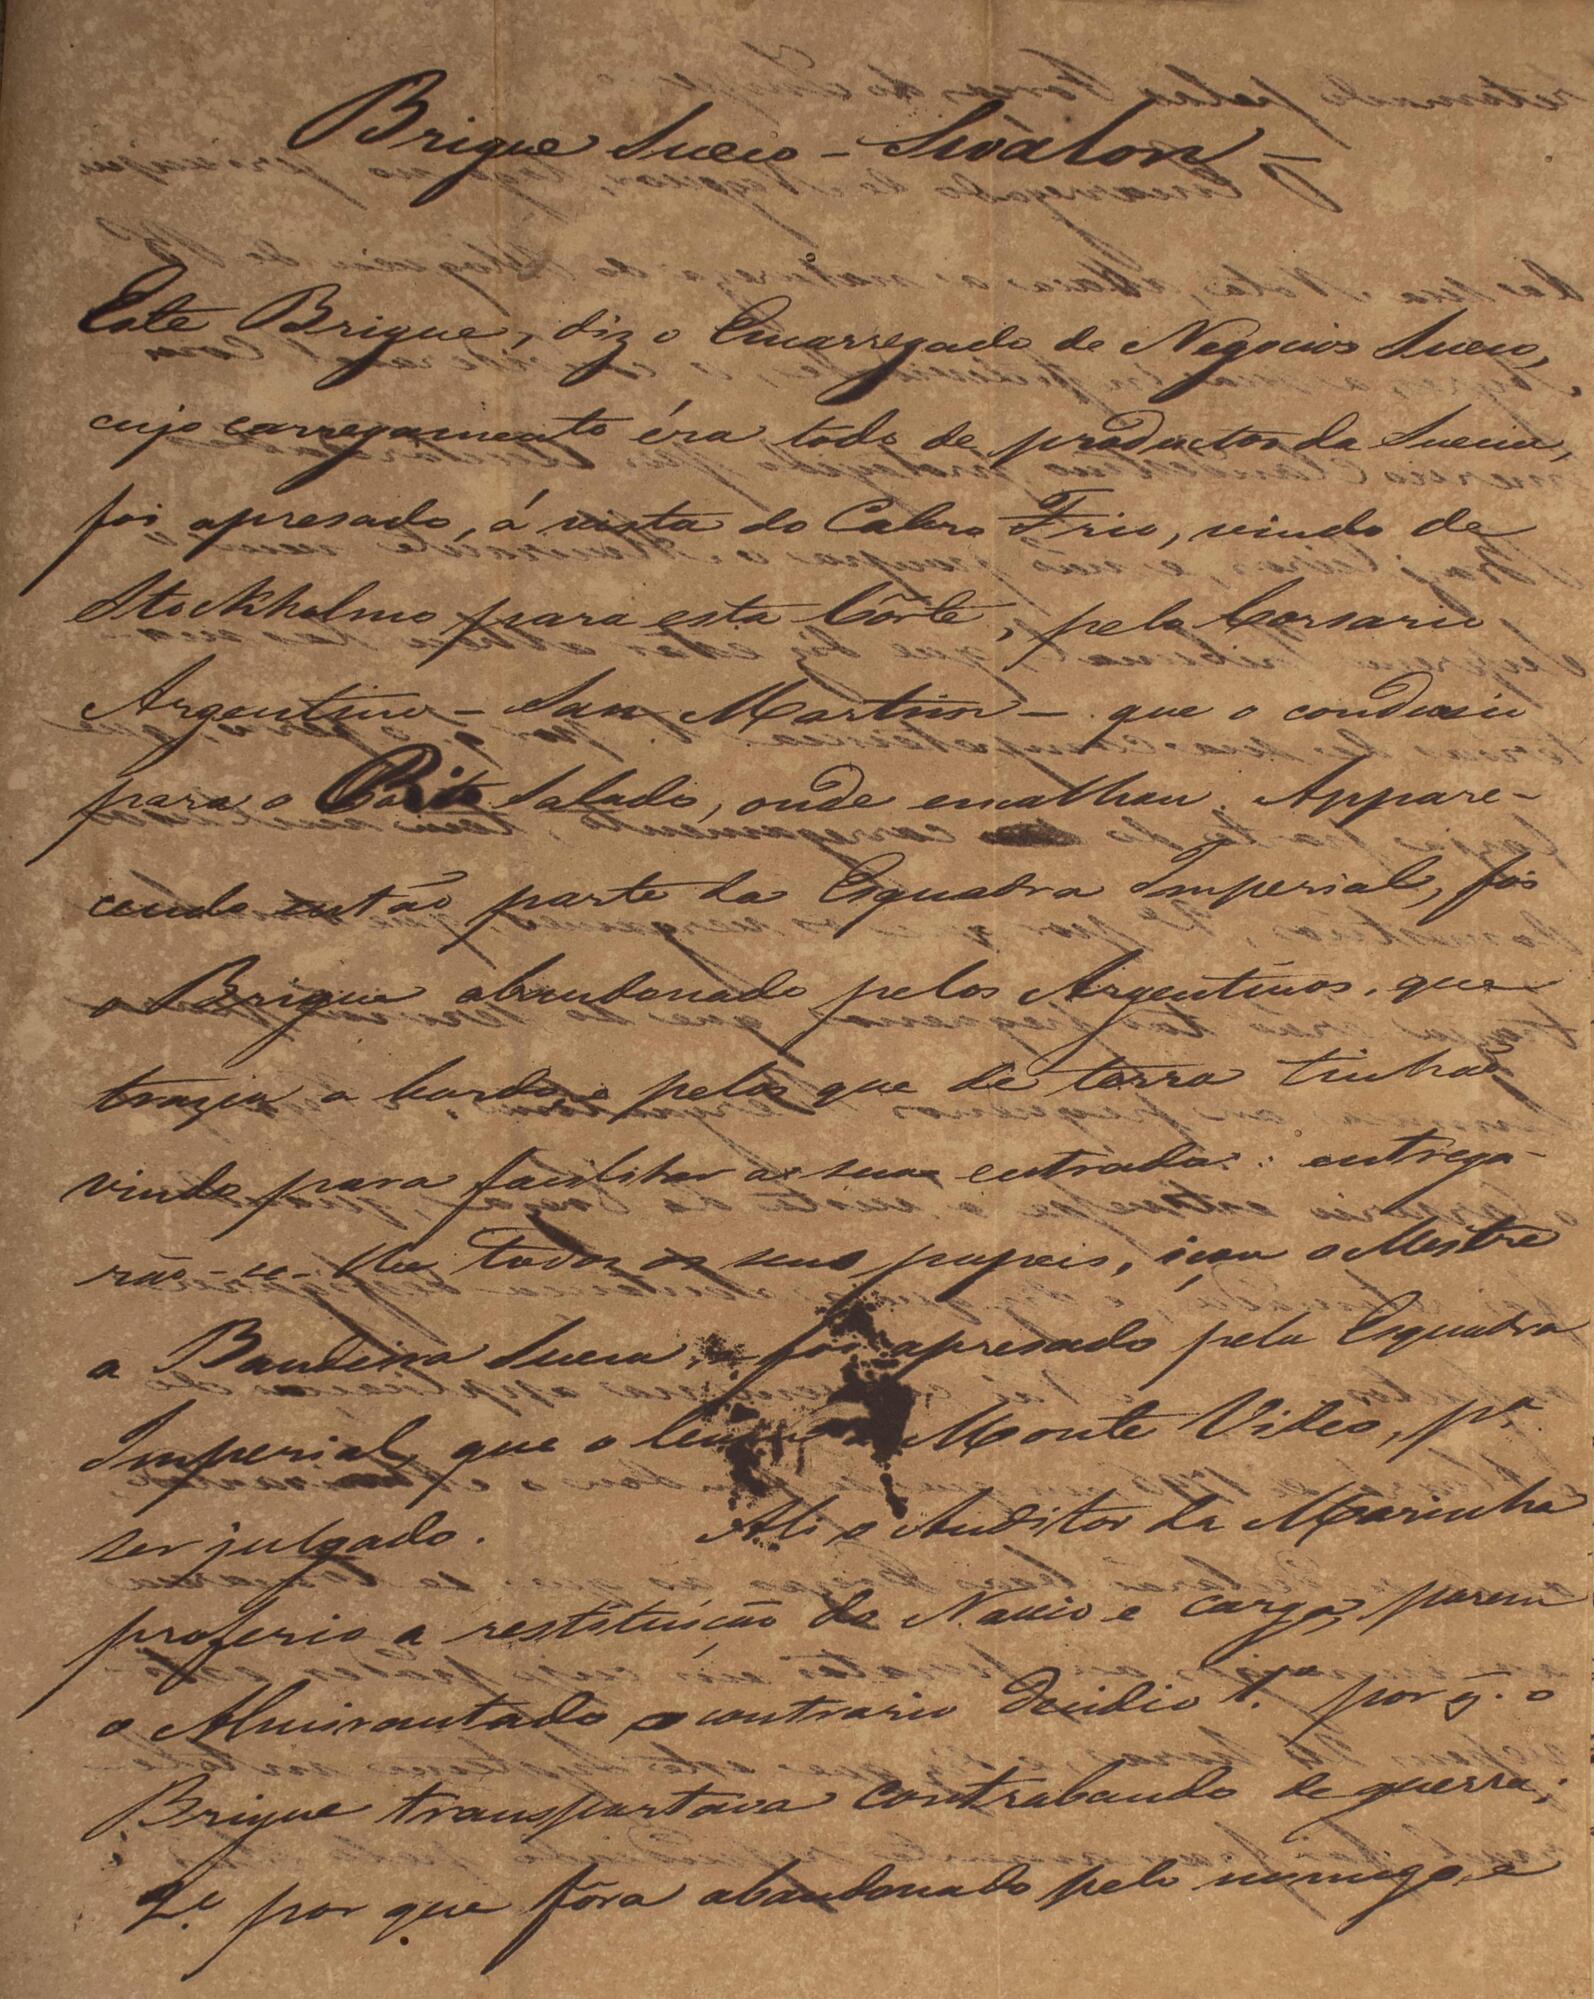 Brigue Sueco – Swalon –
Este Brigue, diz o Encarregado de Negocios Sueco,
cujo carregamento éra todo de productos da Suecia,
foi apresado, á vista do Cabro Frio, vindo de
Stockholmo para esta Côrte, pelo Corsario
Argentino – San Martin – que o conduzio
para o Salado, onde encalhou. Appare-
cendo então parte da Esquadra Imperial, foi
o Brigue abandonado pelos Argentinos, que
trazia a bordo e pelos que de terra tinhão
vindo para facilitar a sua entrada: entrega-
rão-se-lhe todos os seus papeis, içou o Mestre
a Bandeira Sueca, e foi apresado pela Esquadra
Imperial, que o Monte Video, pª
ser julgado. Ali o Auditor da Marinha
proferio a restituição do Navio e carga, porem
o Almirantado o contrario decidio 1.º por q̃. o
Brigue transportava contrabando de guerra;
2.º por que fôra abandonado pelo inimigo, e